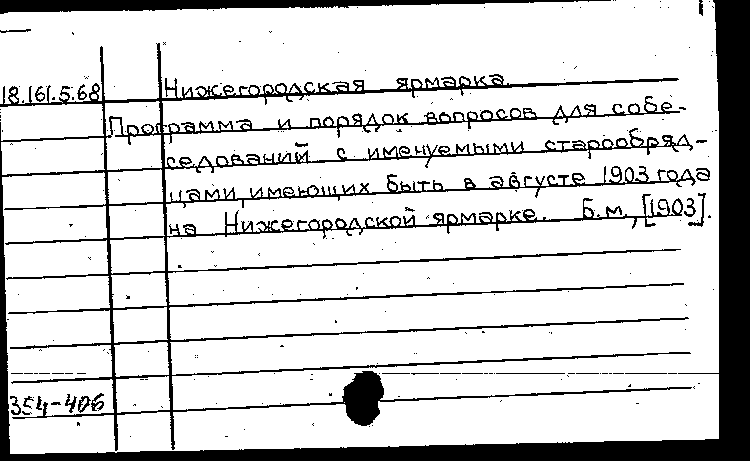 18.161.5.68 Нижегородская ярмарка.
Программа и порядок вопросов для собе-
седований с именуемыми старообряд-
цами, имеющих быть в августе 1903 года
на Нижегородской ярмарке. Б.м., [1903].
354-406